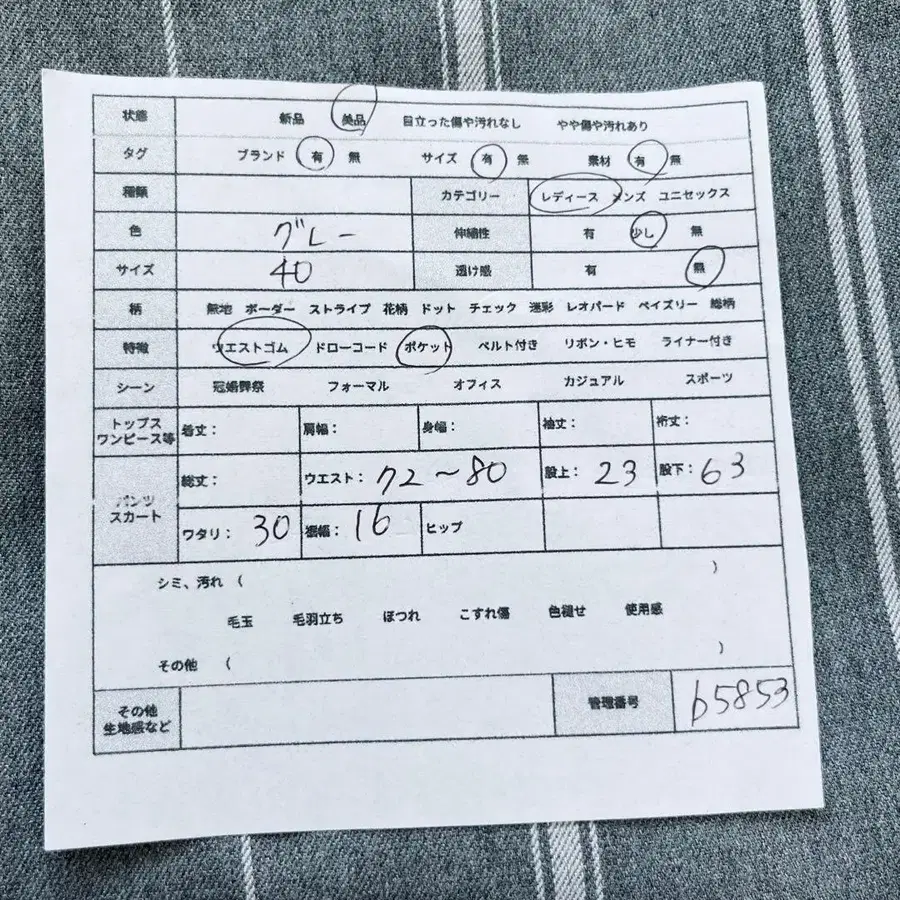 状態 新品 美品 目立った傷や汚れなし やや傷や汚れあり
タグ ブランド 有 無 サイズ 有 無 素材 有 無
種類 カテゴリー レディース メンズ ユニセックス
色 グレー 伸縮性 有 少し 無
サイズ 40 透け感 有 無
柄 無地 ボーダー ストライプ 花柄 ドット チェック 迷彩 レオパード ペイズリー 総柄
特徴 ウエストゴム ドローコード ポケット ベルト付き リボン・ヒモ ライナー付き
シーン 冠婚葬祭 フォーマル オフィス カジュアル スポーツ
トップス
ワンピース等 着丈: 肩幅: 身幅: 袖丈: 裄丈:
パンツ
スカート 総丈: ウエスト: 72~80 股上: 23 股下: 63
ワタリ: 30 裾幅: 16 ヒップ
シミ、汚れ ( )
毛玉 毛羽立ち ほつれ こすれ傷 色褪せ 使用感
その他 ( )
その他
生地感など 管理番号 b5853